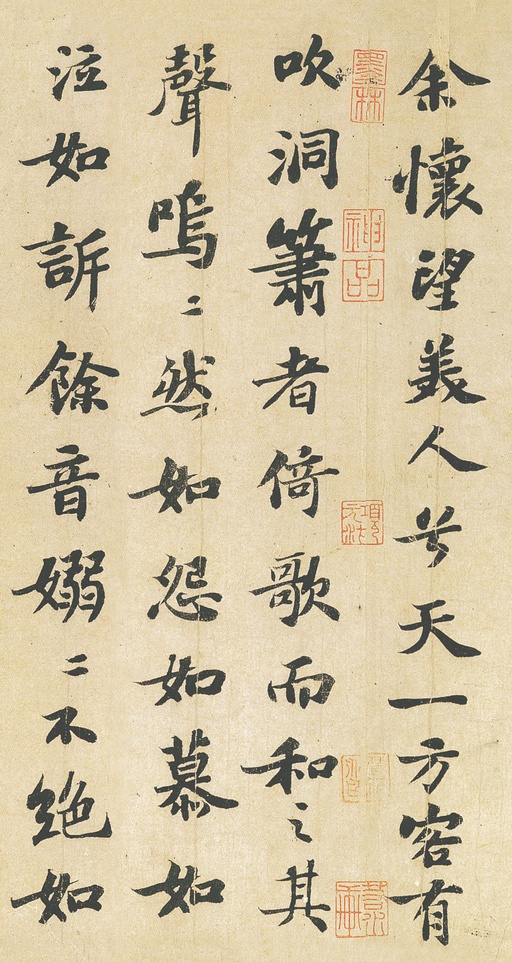 余懷望美人兮天一方客有
吹洞簫者倚歌而和之其
聲嗚〻然如怨如慕如
泣如訴餘音嫋〻不絕如
墨林
神品
項元汴